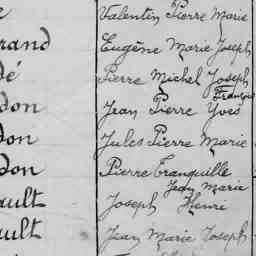 Valentin Pierre Marie
rand Eugène Marie Joseph
dé Pierre Michel Joseph
François
don Jean Pierre Yves
don Jules Pierre Marie
don Pierre Tranquille
Jean Marie
ault Joseph Henri
ault Jean Marie Joseph